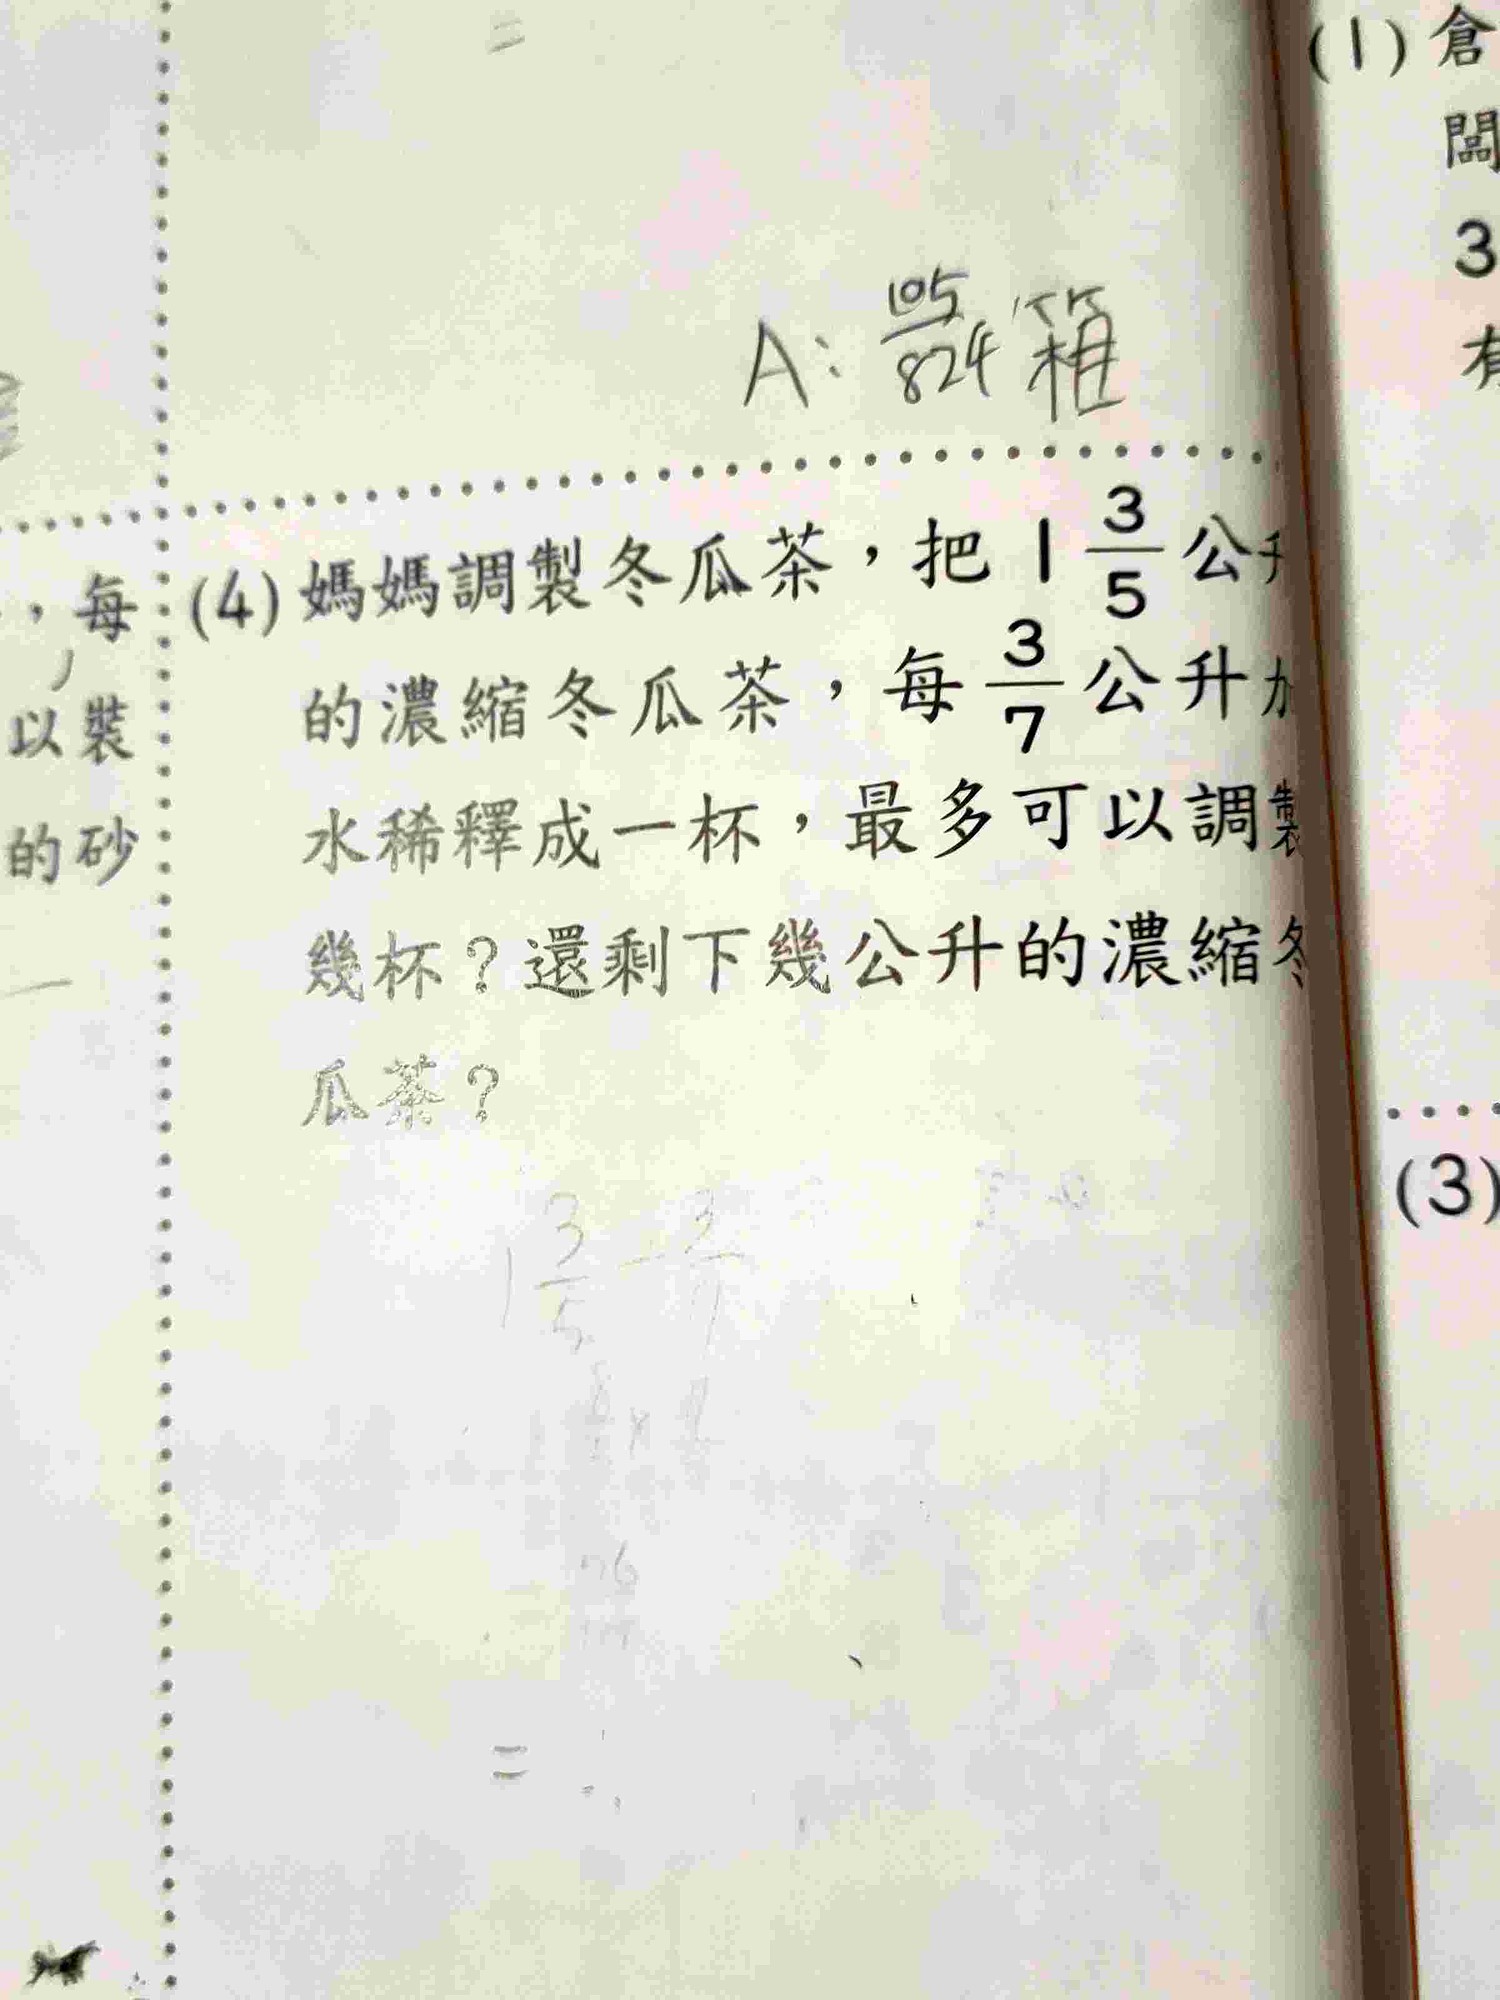 A: 105/824 箱
(4) 媽媽調製冬瓜茶，把 1 3/5 公升
的濃縮冬瓜茶，每 3/7 公升加
水稀釋成一杯，最多可以調製
幾杯？還剩下幾公升的濃縮冬
瓜茶？
1 3/5
=
，每
以裝
的砂
(1) 倉
闆
3
有
(3)